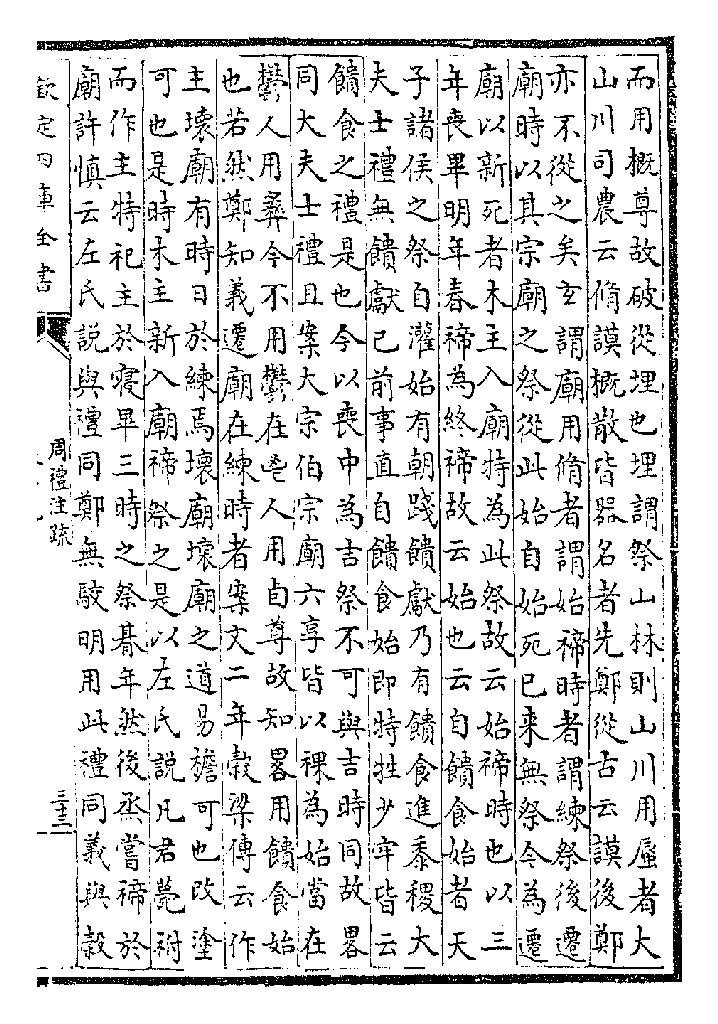 而用概尊故破從埋也埋謂祭山林則山川用蜃者大
山川司農云脩謨概散皆器名者先鄭從古云謨後鄭
亦不從之矣玄謂廟用脩者謂始禘時者謂練祭後遷
廟時以其宗廟之祭從此始自始死已來無祭今為遷
廟以新死者木主入廟特為此祭故云始禘時也以三
年喪畢明年春禘為終禘故云始也云自饋食始者天
子諸侯之祭自灌始有朝踐饋獻乃有饋食進黍稷大
夫士禮無饋獻已前事直自饋食始即特牲少牢皆云
饋食之禮是也今以喪中為吉祭不可與吉時同故畧
同大夫士禮且案大宗伯宗廟六享皆以祼為始當在
鬱人用彝今不用鬱在鬯人用卣尊故知畧用饋食始
也若然鄭知義遷廟在練時者案文二年穀梁傳云作
主壞廟有時日於練焉壞廟壞廟之道易檐可也改塗
可也是時木主新入廟禘祭之是以左氏説凡君薨祔
而作主特祀主於寢畢三時之祭朞年然後烝嘗禘於
廟許慎云左氏説與禮同鄭無駮明用此禮同義與穀
欽定四庫全書
周禮注疏
三十三